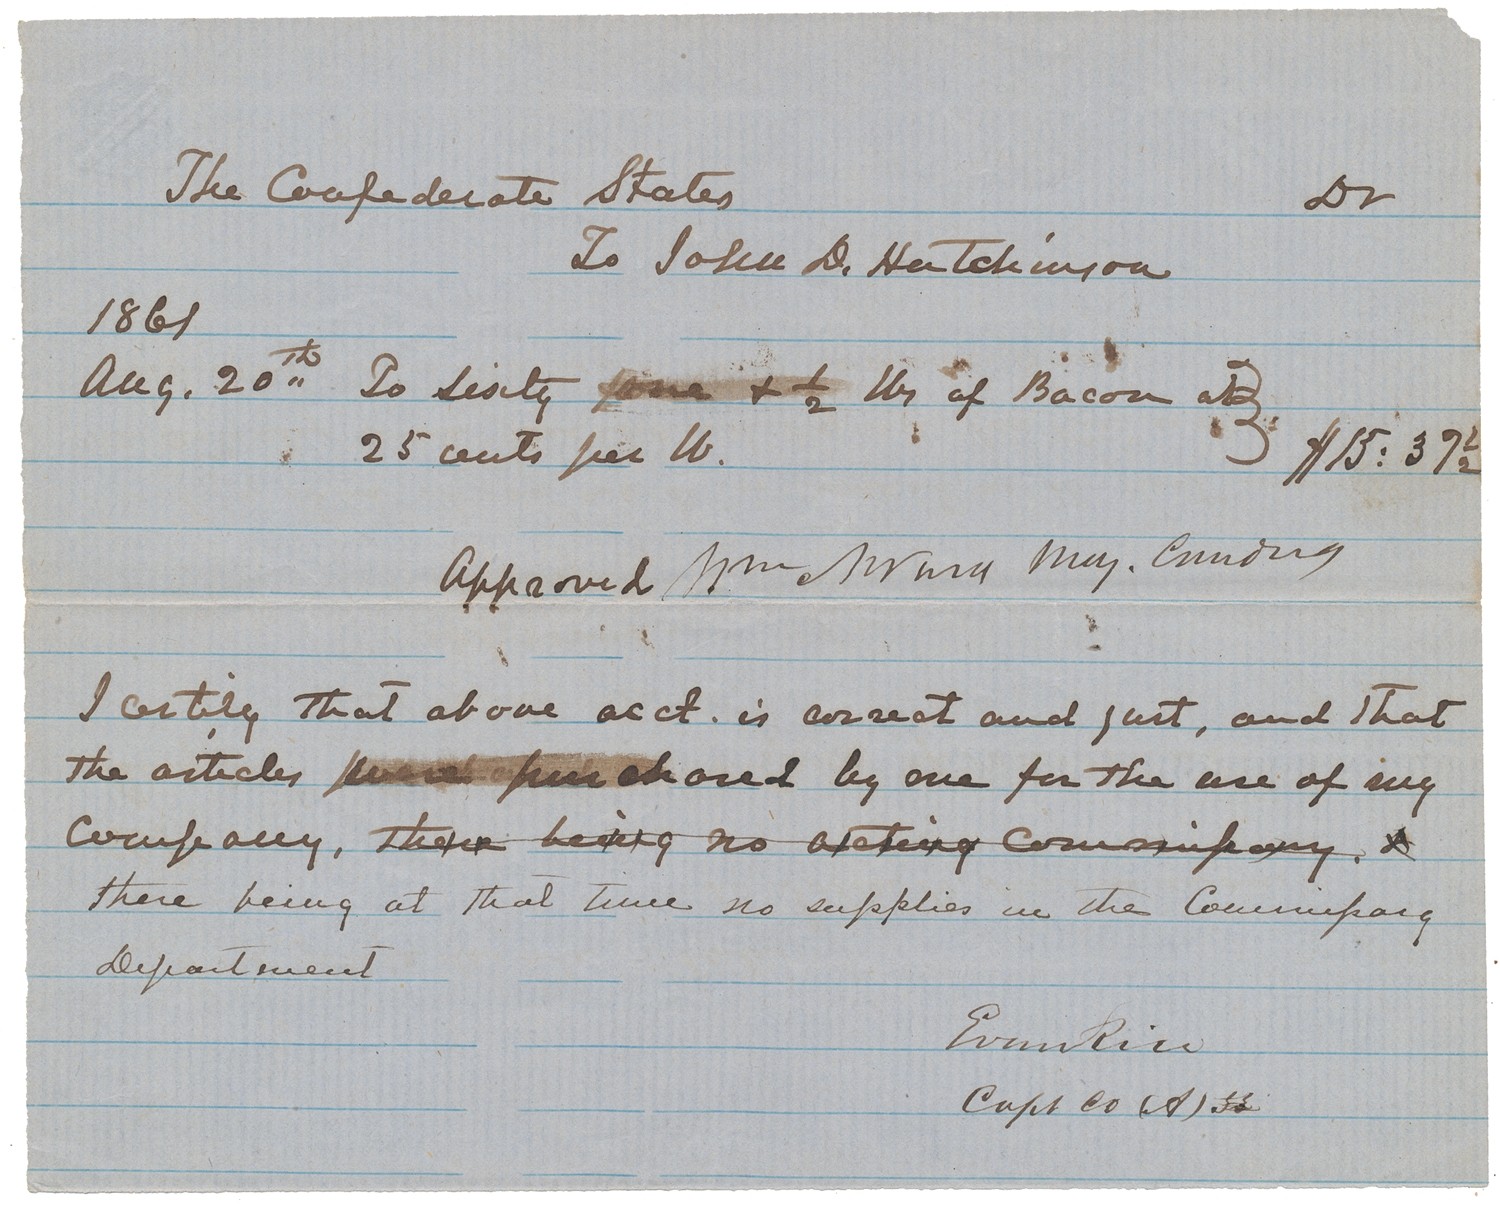 The Confederate States Dr
To John D. Hutchinson
1861
Aug. 20th To sixty one + 1/2 lbs of Bacon at
25 cents per lb. $15:37 1/2
Approved Wm Ward Maj. Comdng
I certify that above acct. is correct and just, and that
the articles were purchased by me for the use of my
Company, there being no acting Commissary. &
there being at that time no supplies in the Commissary
Department
Evan Rice
Capt Co (A)